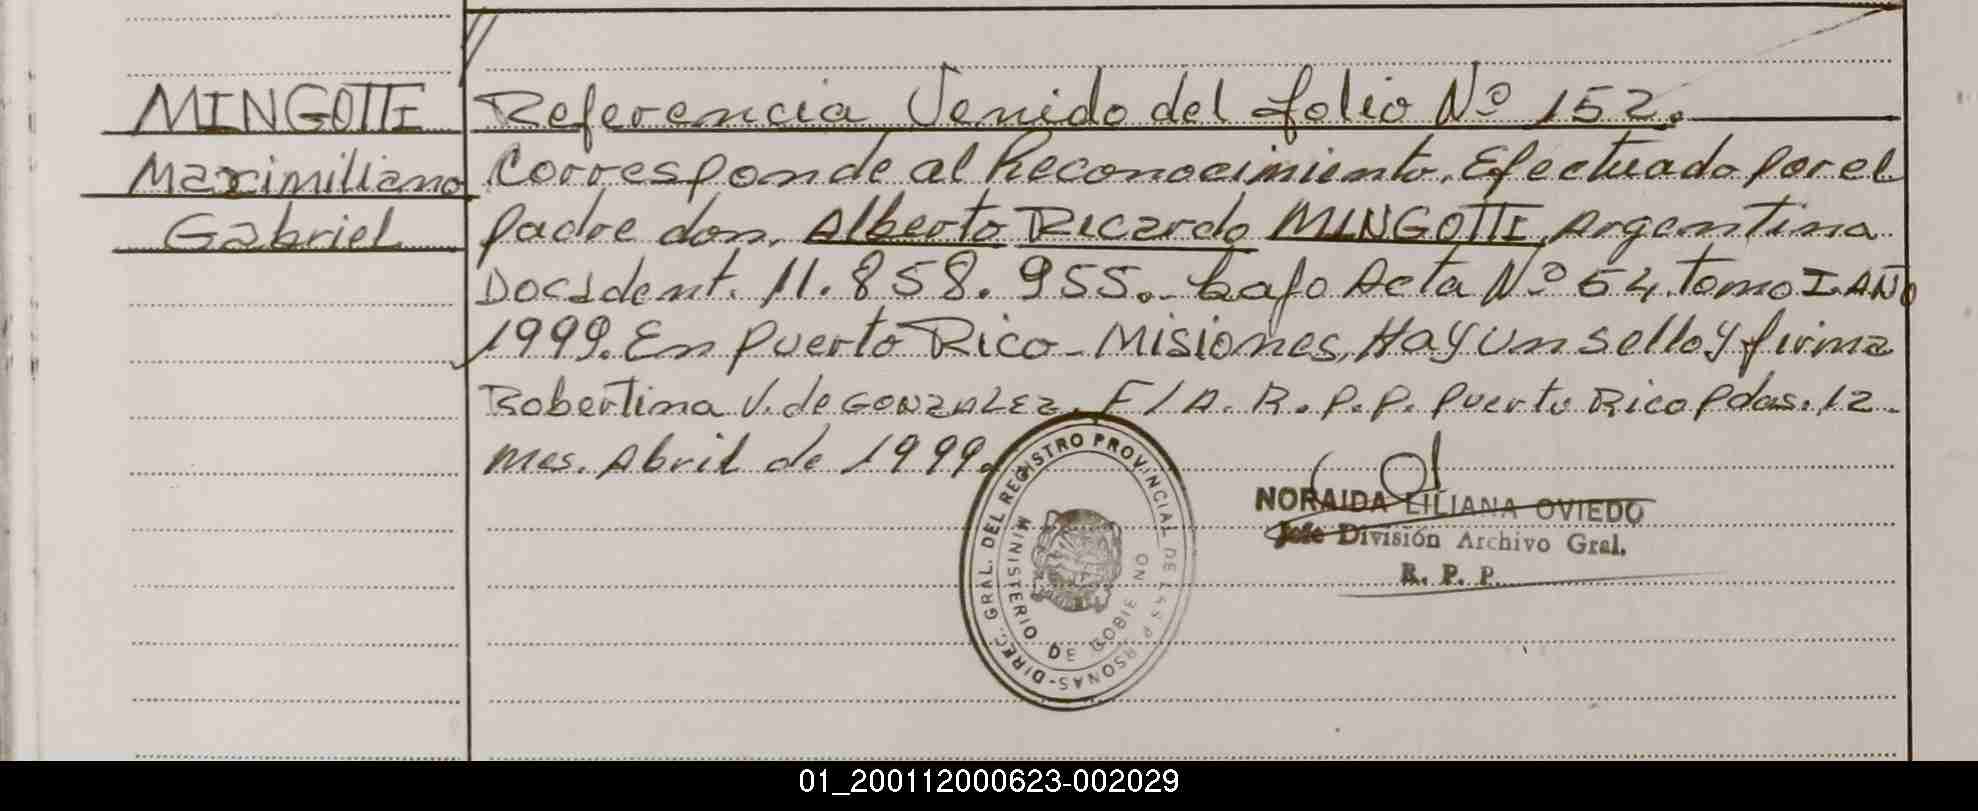 MINGOTTI
Maximiliano
Gabriel
Referencia Venido del folio Nº 152.
Corresponde al Reconocimiento. Efectuado por el
padre don. Alberto Ricardo MINGOTTI, Argentina
Doc Ident. 11.858.955.- bajo Acta Nº 54. tomo I. AÑO
1999. En Puerto Rico - Misiones, Hay un sello y firma
Robertina V. de GONZALEZ. F/A. R.P.P. Puerto Rico Pdas. 12.
mes. Abril de 1999.
DIREC. GRAL. DEL REGISTRO PROVINCIAL DE LAS PERSONAS-
MINISTERIO DE GOBIERNO
NORAIDA LILIANA OVIEDO
Jefe División Archivo Gral.
R. P. P.
01_200112000623-002029